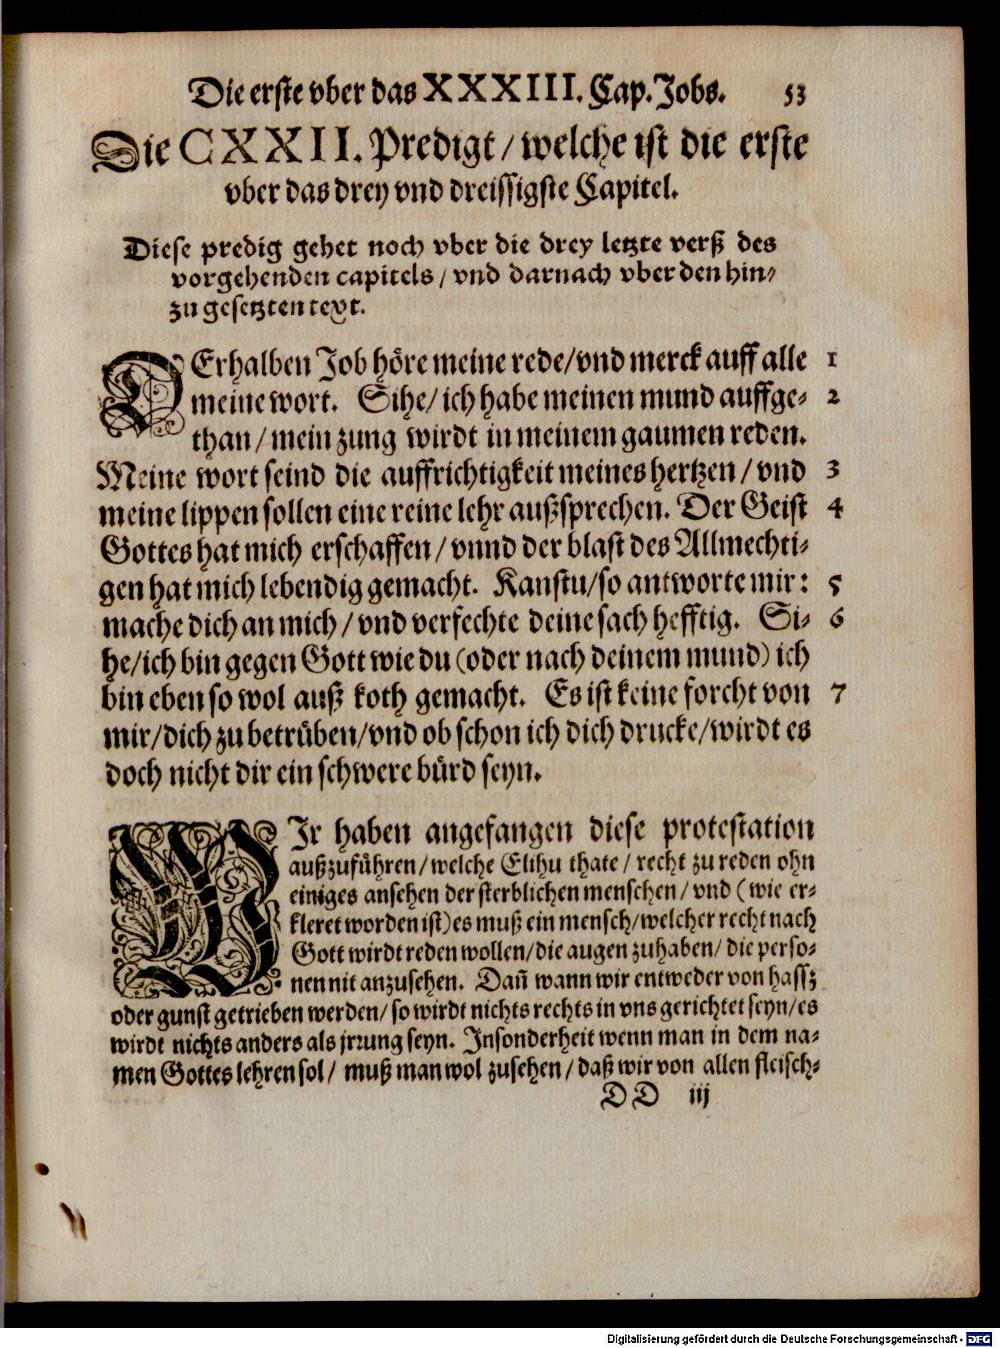 Die erste vber das XXXIII. Cap. Jobs. 53
Die CXXII. Predigt / welche ist die erste
vber das drey vnd dreissigste Capitel.
Diese predig gehet noch vber die drey letzte verß des
vorgehenden capitels / vnd darnach vber den hin-
zu gesetzten text.
DErhalben Job höre meine rede/vnd merck auff alle 1
meine wort. Sihe/ ich habe meinen mund auffge- 2
than / mein zung wirdt in meinem gaumen reden.
Meine wort seind die auffrichtigkeit meines hertzen / vnd 3
meine lippen sollen eine reine lehr außsprechen. Der Geist 4
Gottes hat mich erschaffen / vnnd der blast des Allmechti-
gen hat mich lebendig gemacht. Kanstu/so antworte mir: 5
mache dich an mich / vnd verfechte deine sach hefftig. Si- 6
he/ich bin gegen Gott wie du (oder nach deinem mund) ich
bin eben so wol auß koth gemacht. Es ist keine forcht von 7
mir/dich zu betrüben/vnd ob schon ich dich drucke/wirdt es
doch nicht dir ein schwere bürd seyn.
WIr haben angefangen diese protestation
außzuführen/welche Elihu thate / recht zu reden ohn
einiges ansehen der sterblichen menschen / vnd ( wie er-
kleret worden ist) es muß ein mensch/welcher recht nach
Gott wirdt reden wollen/die augen zuhaben/ die perso-
nen nit anzusehen. Dañ wann wir entweder von hassz
oder gunst getrieben werden/ so wirdt nichts rechts in vns gerichtet seyn/es
wirdt nichts anders als jrrung seyn. Insonderheit wenn man in dem na-
men Gottes lehren sol/ muß man wol zusehen / daß wir von allen fleisch-
DD iij
Digitalisierung gefördert durch die Deutsche Forschungsgemeinschaft - DFG